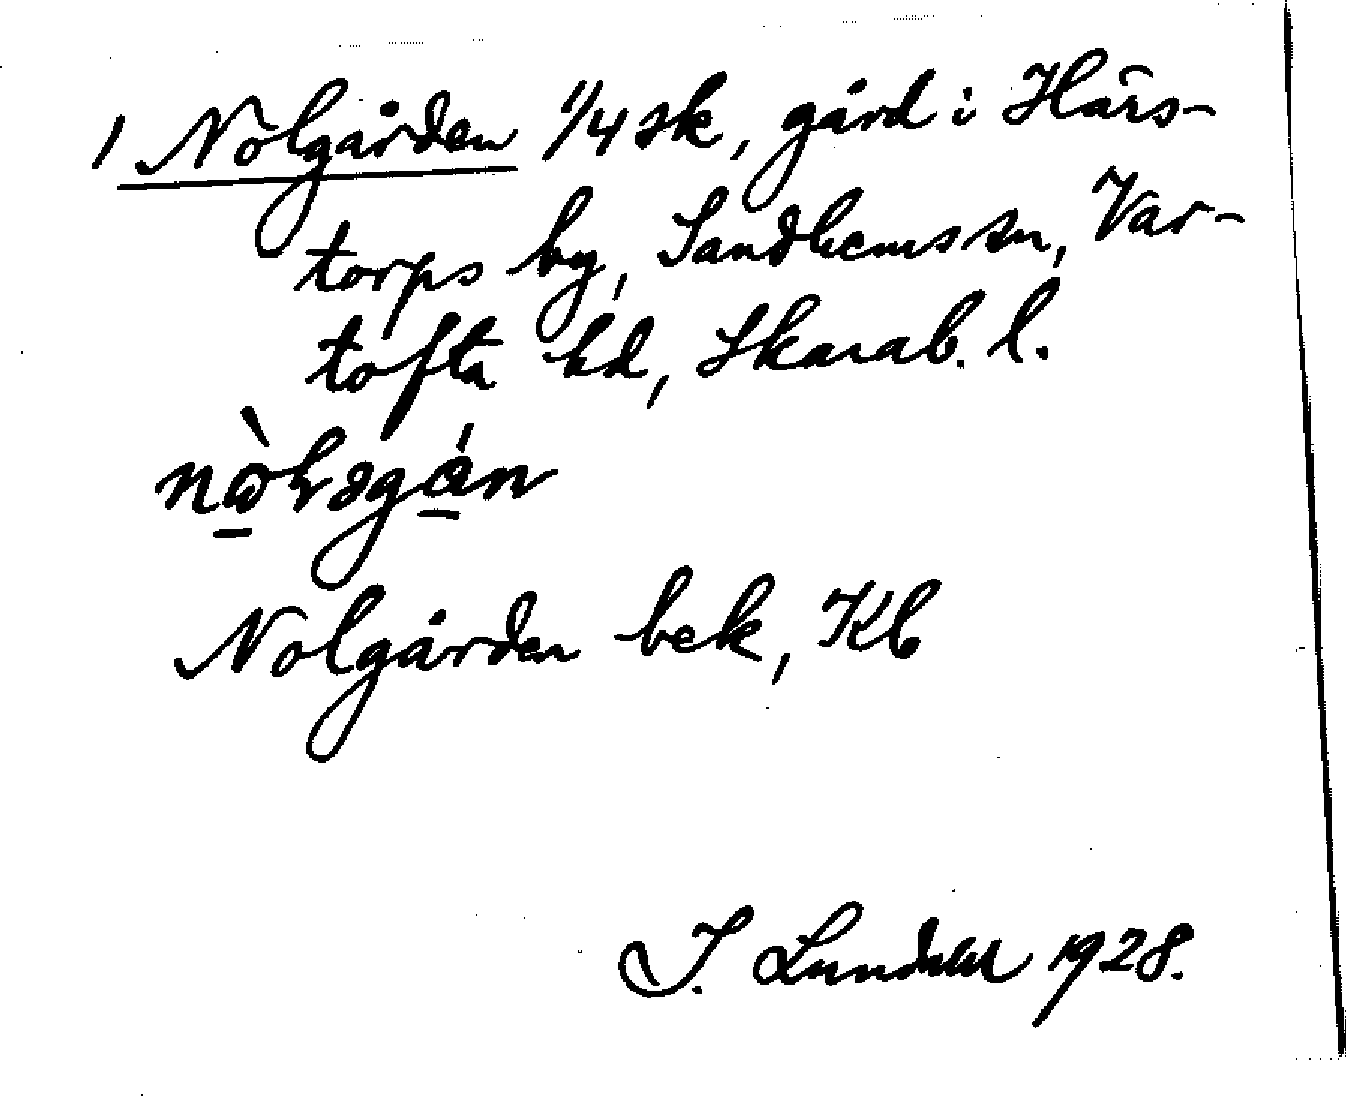 1 Nolgården 1/4 sk, gård i Härs-
torps by, Sandhems sn, Var-
tofta hd, Skarab. l.
Nolgården bek, Kb
J. Lundahl 1928.